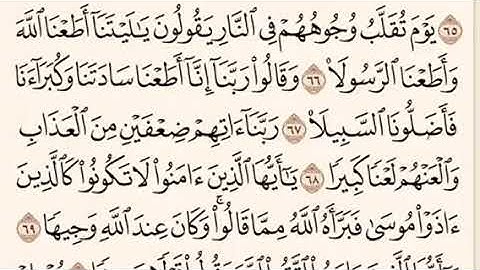 ٦٥ يَوْمَ تُقَلَّبُ وُجُوهُهُمْ فِي ٱلنَّارِ يَقُولُونَ يَٰلَيْتَنَآ أَطَعْنَا ٱللَّهَ
وَأَطَعْنَا ٱلرَّسُولَا۠ ٦٦ وَقَالُوا۟ رَبَّنَآ إِنَّآ أَطَعْنَا سَادَتَنَا وَكُبَرَآءَنَا
فَأَضَلُّونَا ٱلسَّبِيلَا۠ ٦٧ رَبَّنَآ ءَاتِهِمْ ضِعْفَيْنِ مِنَ ٱلْعَذَابِ
وَٱلْعَنْهُمْ لَعْنًا كَبِيرًا ٦٨ يَٰٓأَيُّهَا ٱلَّذِينَ ءَامَنُوا۟ لَا تَكُونُوا۟ كَٱلَّذِينَ
ءَاذَوْا۟ مُوسَىٰ فَبَرَّأَهُ ٱللَّهُ مِمَّا قَالُوا۟ ۚ وَكَانَ عِندَ ٱللَّهِ وَجِيهًا ٦٩